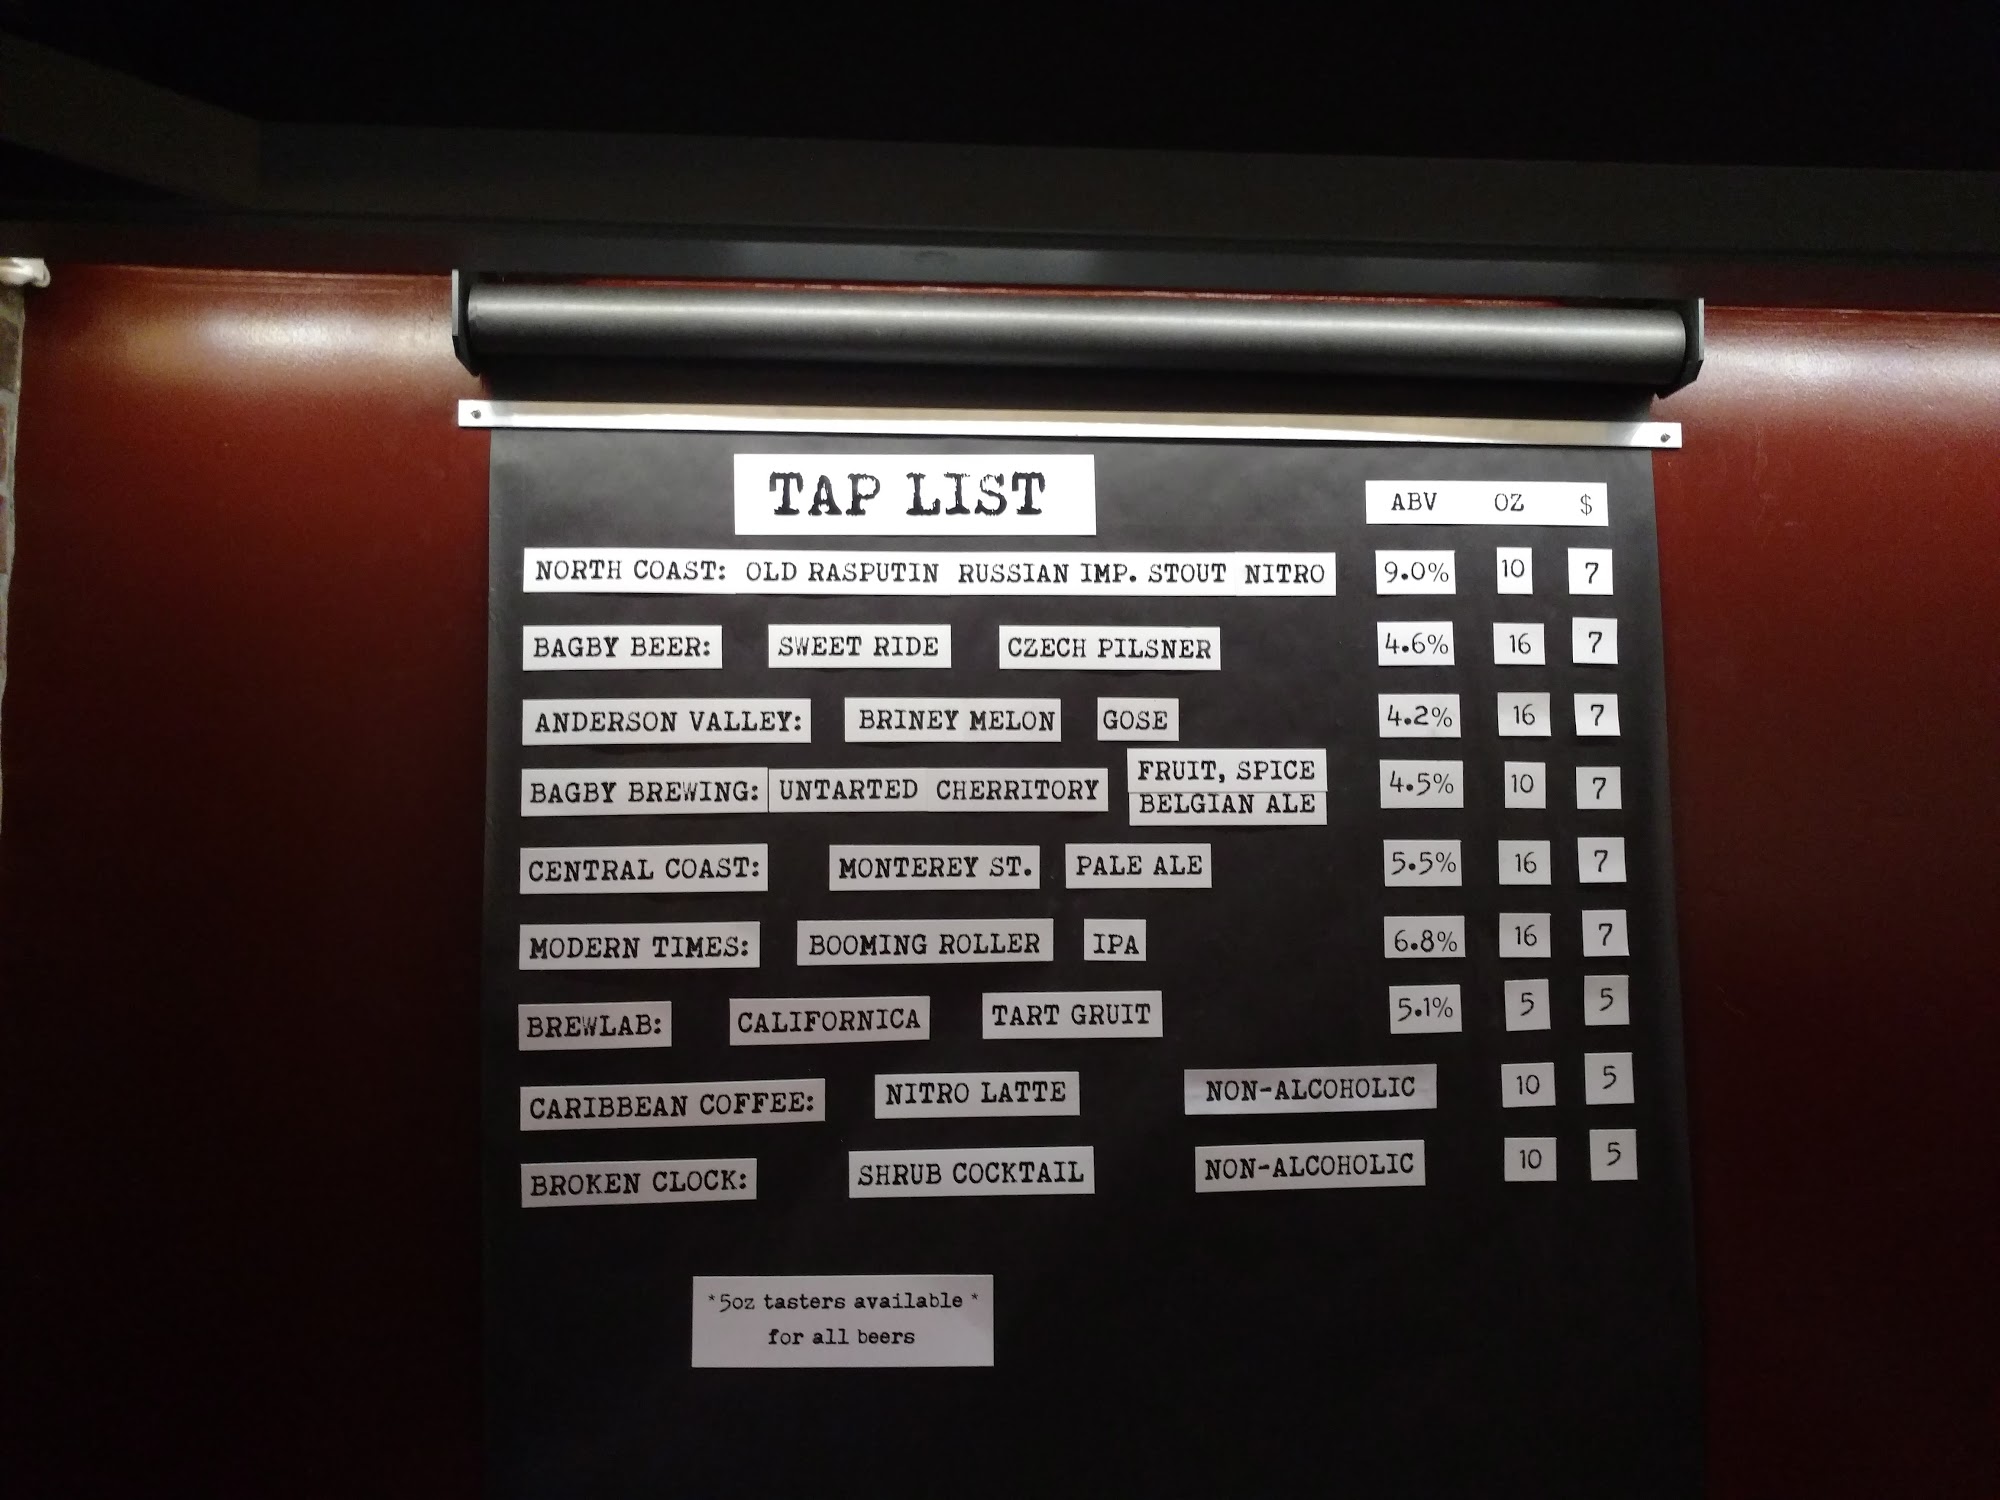 TAP LIST
ABV OZ $
NORTH COAST: OLD RASPUTIN RUSSIAN IMP. STOUT NITRO 9.0% 10 7
BAGBY BEER: SWEET RIDE CZECH PILSNER 4.6% 16 7
ANDERSON VALLEY: BRINEY MELON GOSE 4.2% 16 7
BAGBY BREWING: UNTARTED CHERRITORY FRUIT, SPICE 4.5% 10 7
BELGIAN ALE
CENTRAL COAST: MONTEREY ST. PALE ALE 5.5% 16 7
MODERN TIMES: BOOMING ROLLER IPA 6.8% 16 7
BREWLAB: CALIFORNICA TART GRUIT 5.1% 5 5
CARIBBEAN COFFEE: NITRO LATTE NON-ALCOHOLIC 10 5
BROKEN CLOCK: SHRUB COCKTAIL NON-ALCOHOLIC 10 5
*5oz tasters available *
for all beers